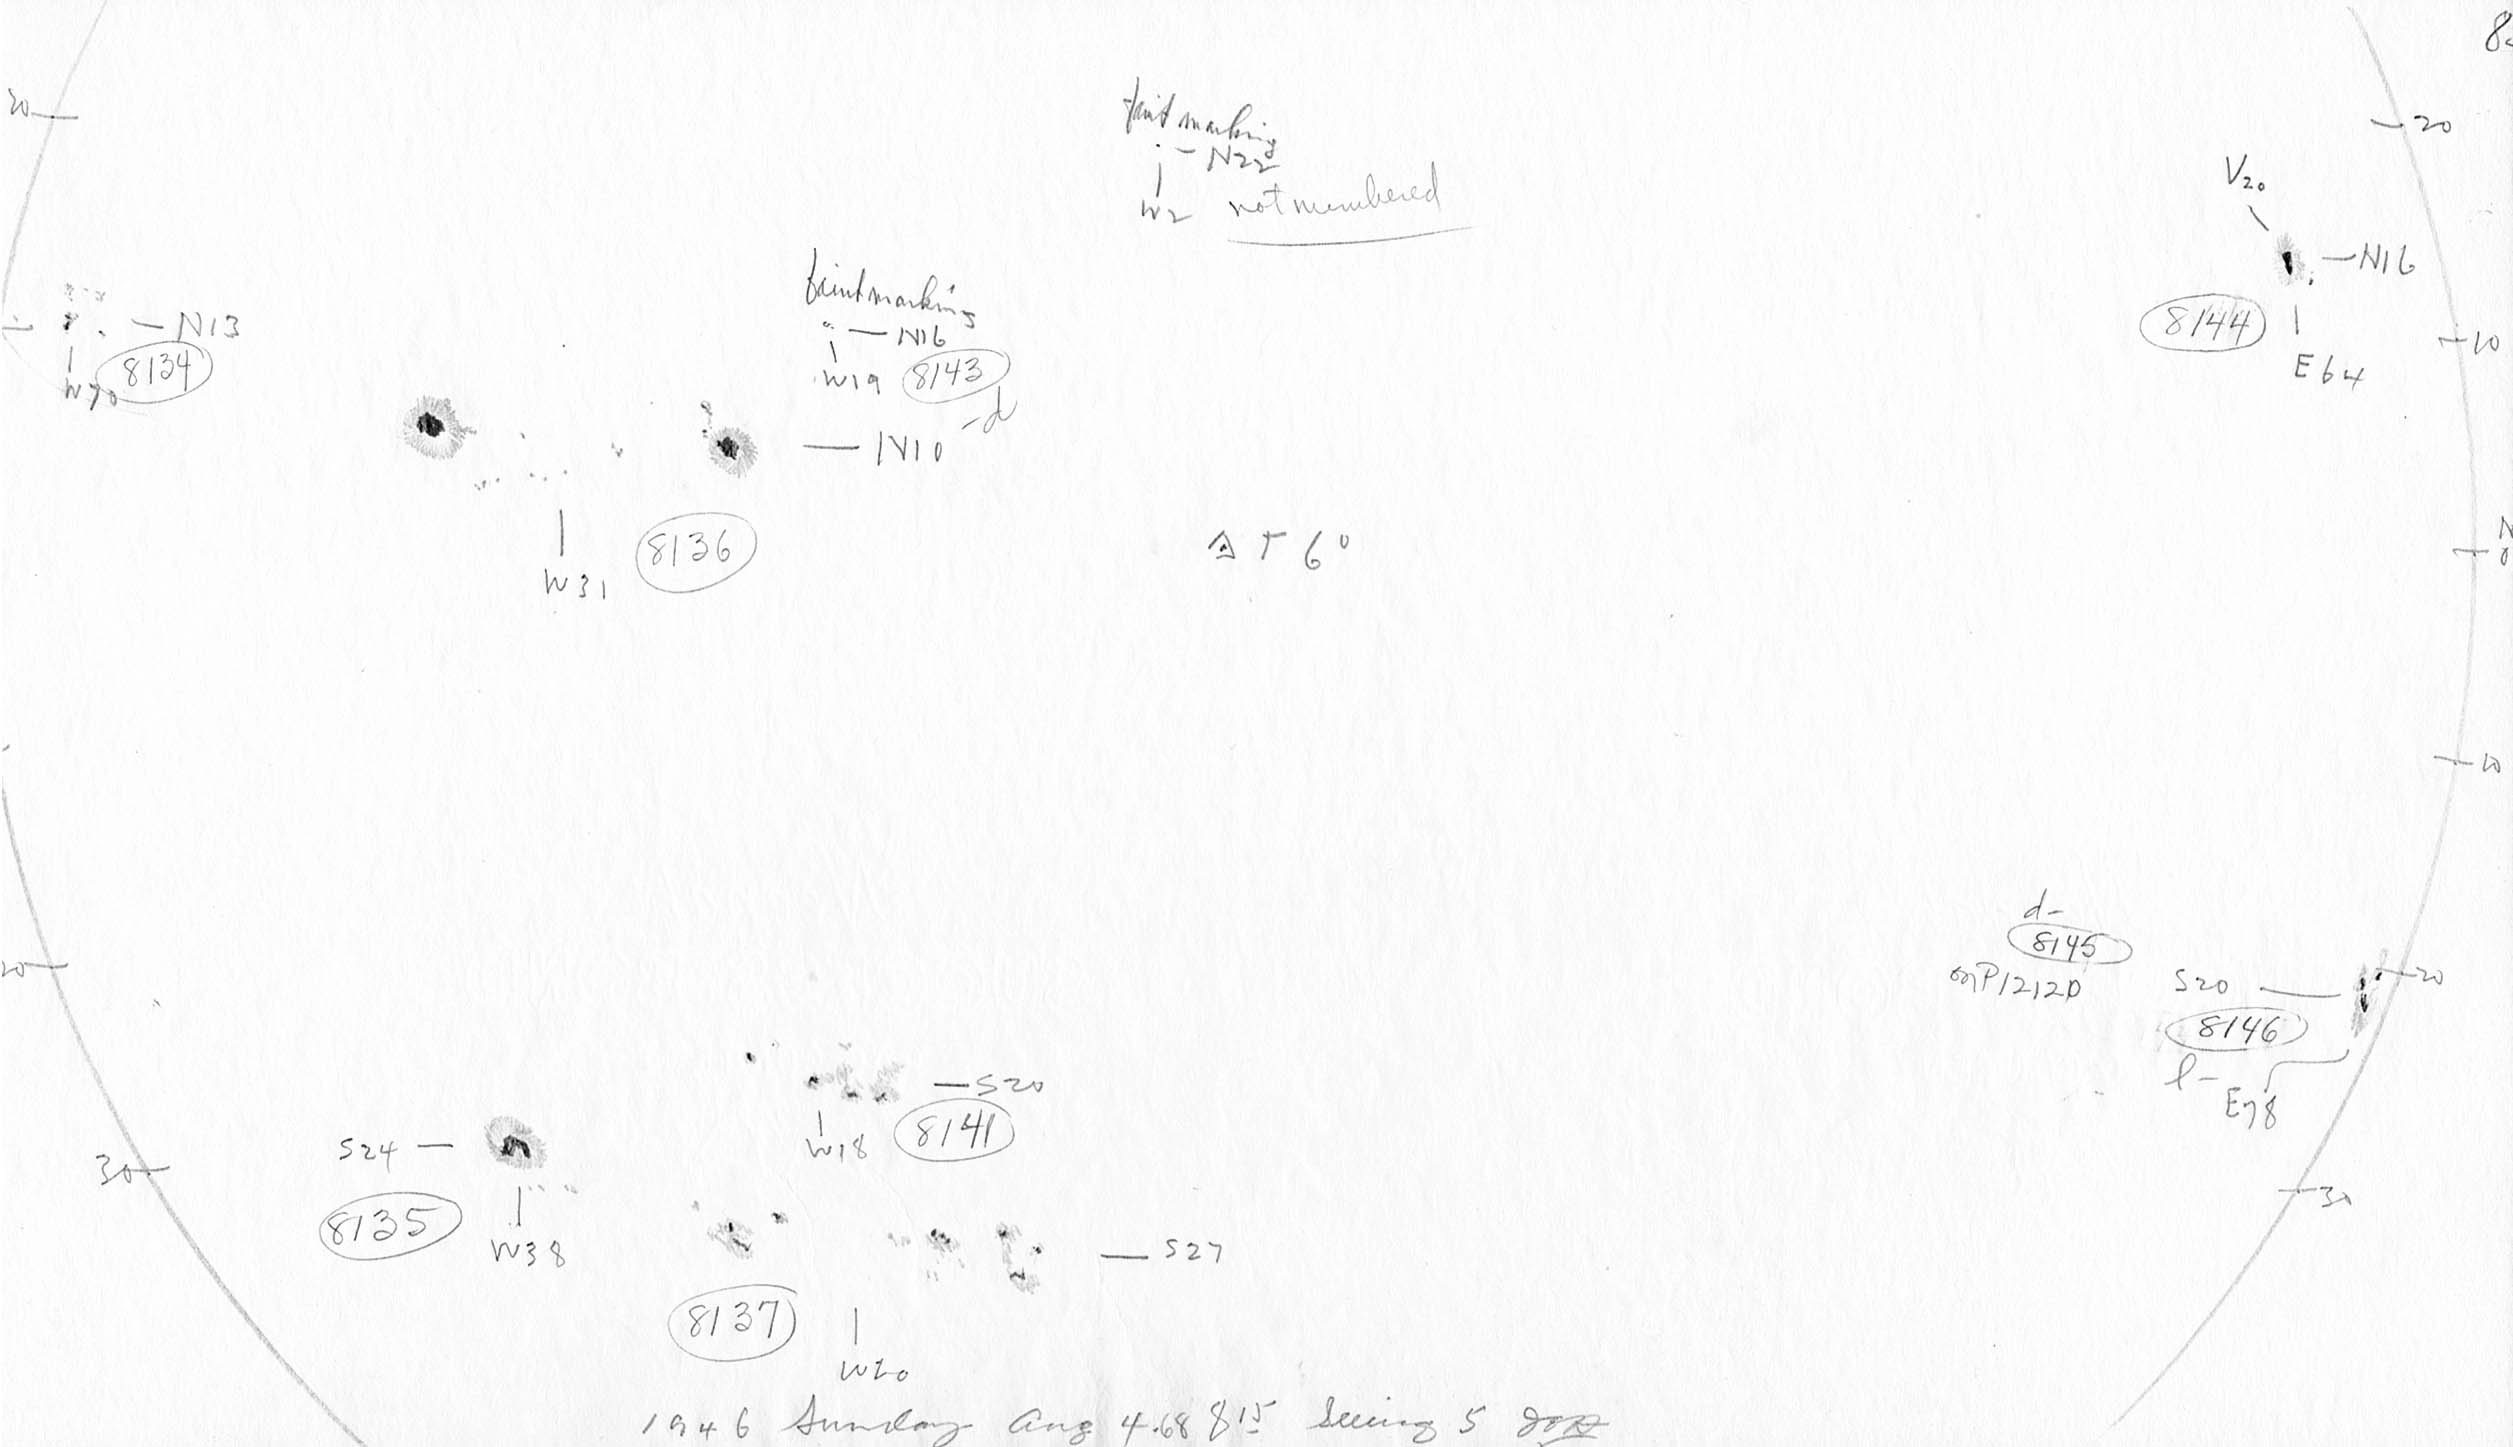 20
faint marking
N22
W2 not numbered
20
V20
N16
8144
E64
10
N13
8134
W70
faint marking
N16
W19 8143
-d
N10
W31 8136
6°
N
0
10
20
d-
8145
on P1212D
S20
20
8146
l-
E78
S20
W18 8141
S24
30
8135
W38
30
S27
8137
W20
1946 Sunday Aug 4.68 8 15 Seeing 5